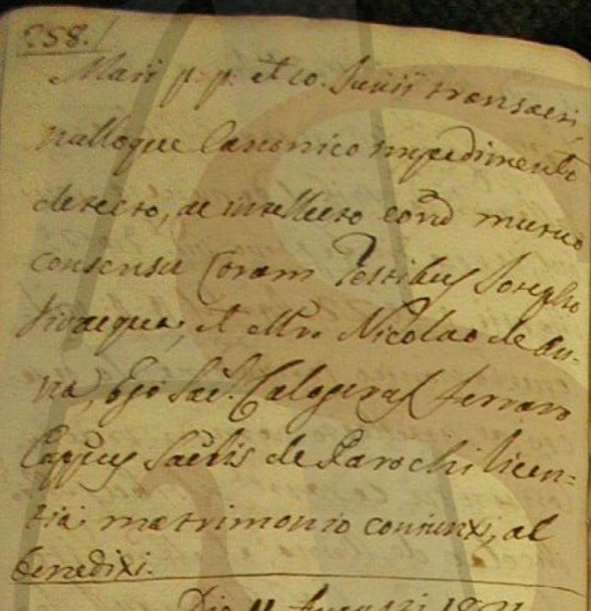 258.
Maii p. p. et 10. Junii transacti,
nulloque Canonico impedimento
detecto, ac intellecto eorũd mutuo
consensu Coram Testibus Joseph
Vivacqua, et Mro. Nicolao de An-
na, Ego Sac. Calogerus Ferraro
Cappus Saclis de Parochi licen-
tia matrimonio coniunxi, ac
benedixi.
Die 11